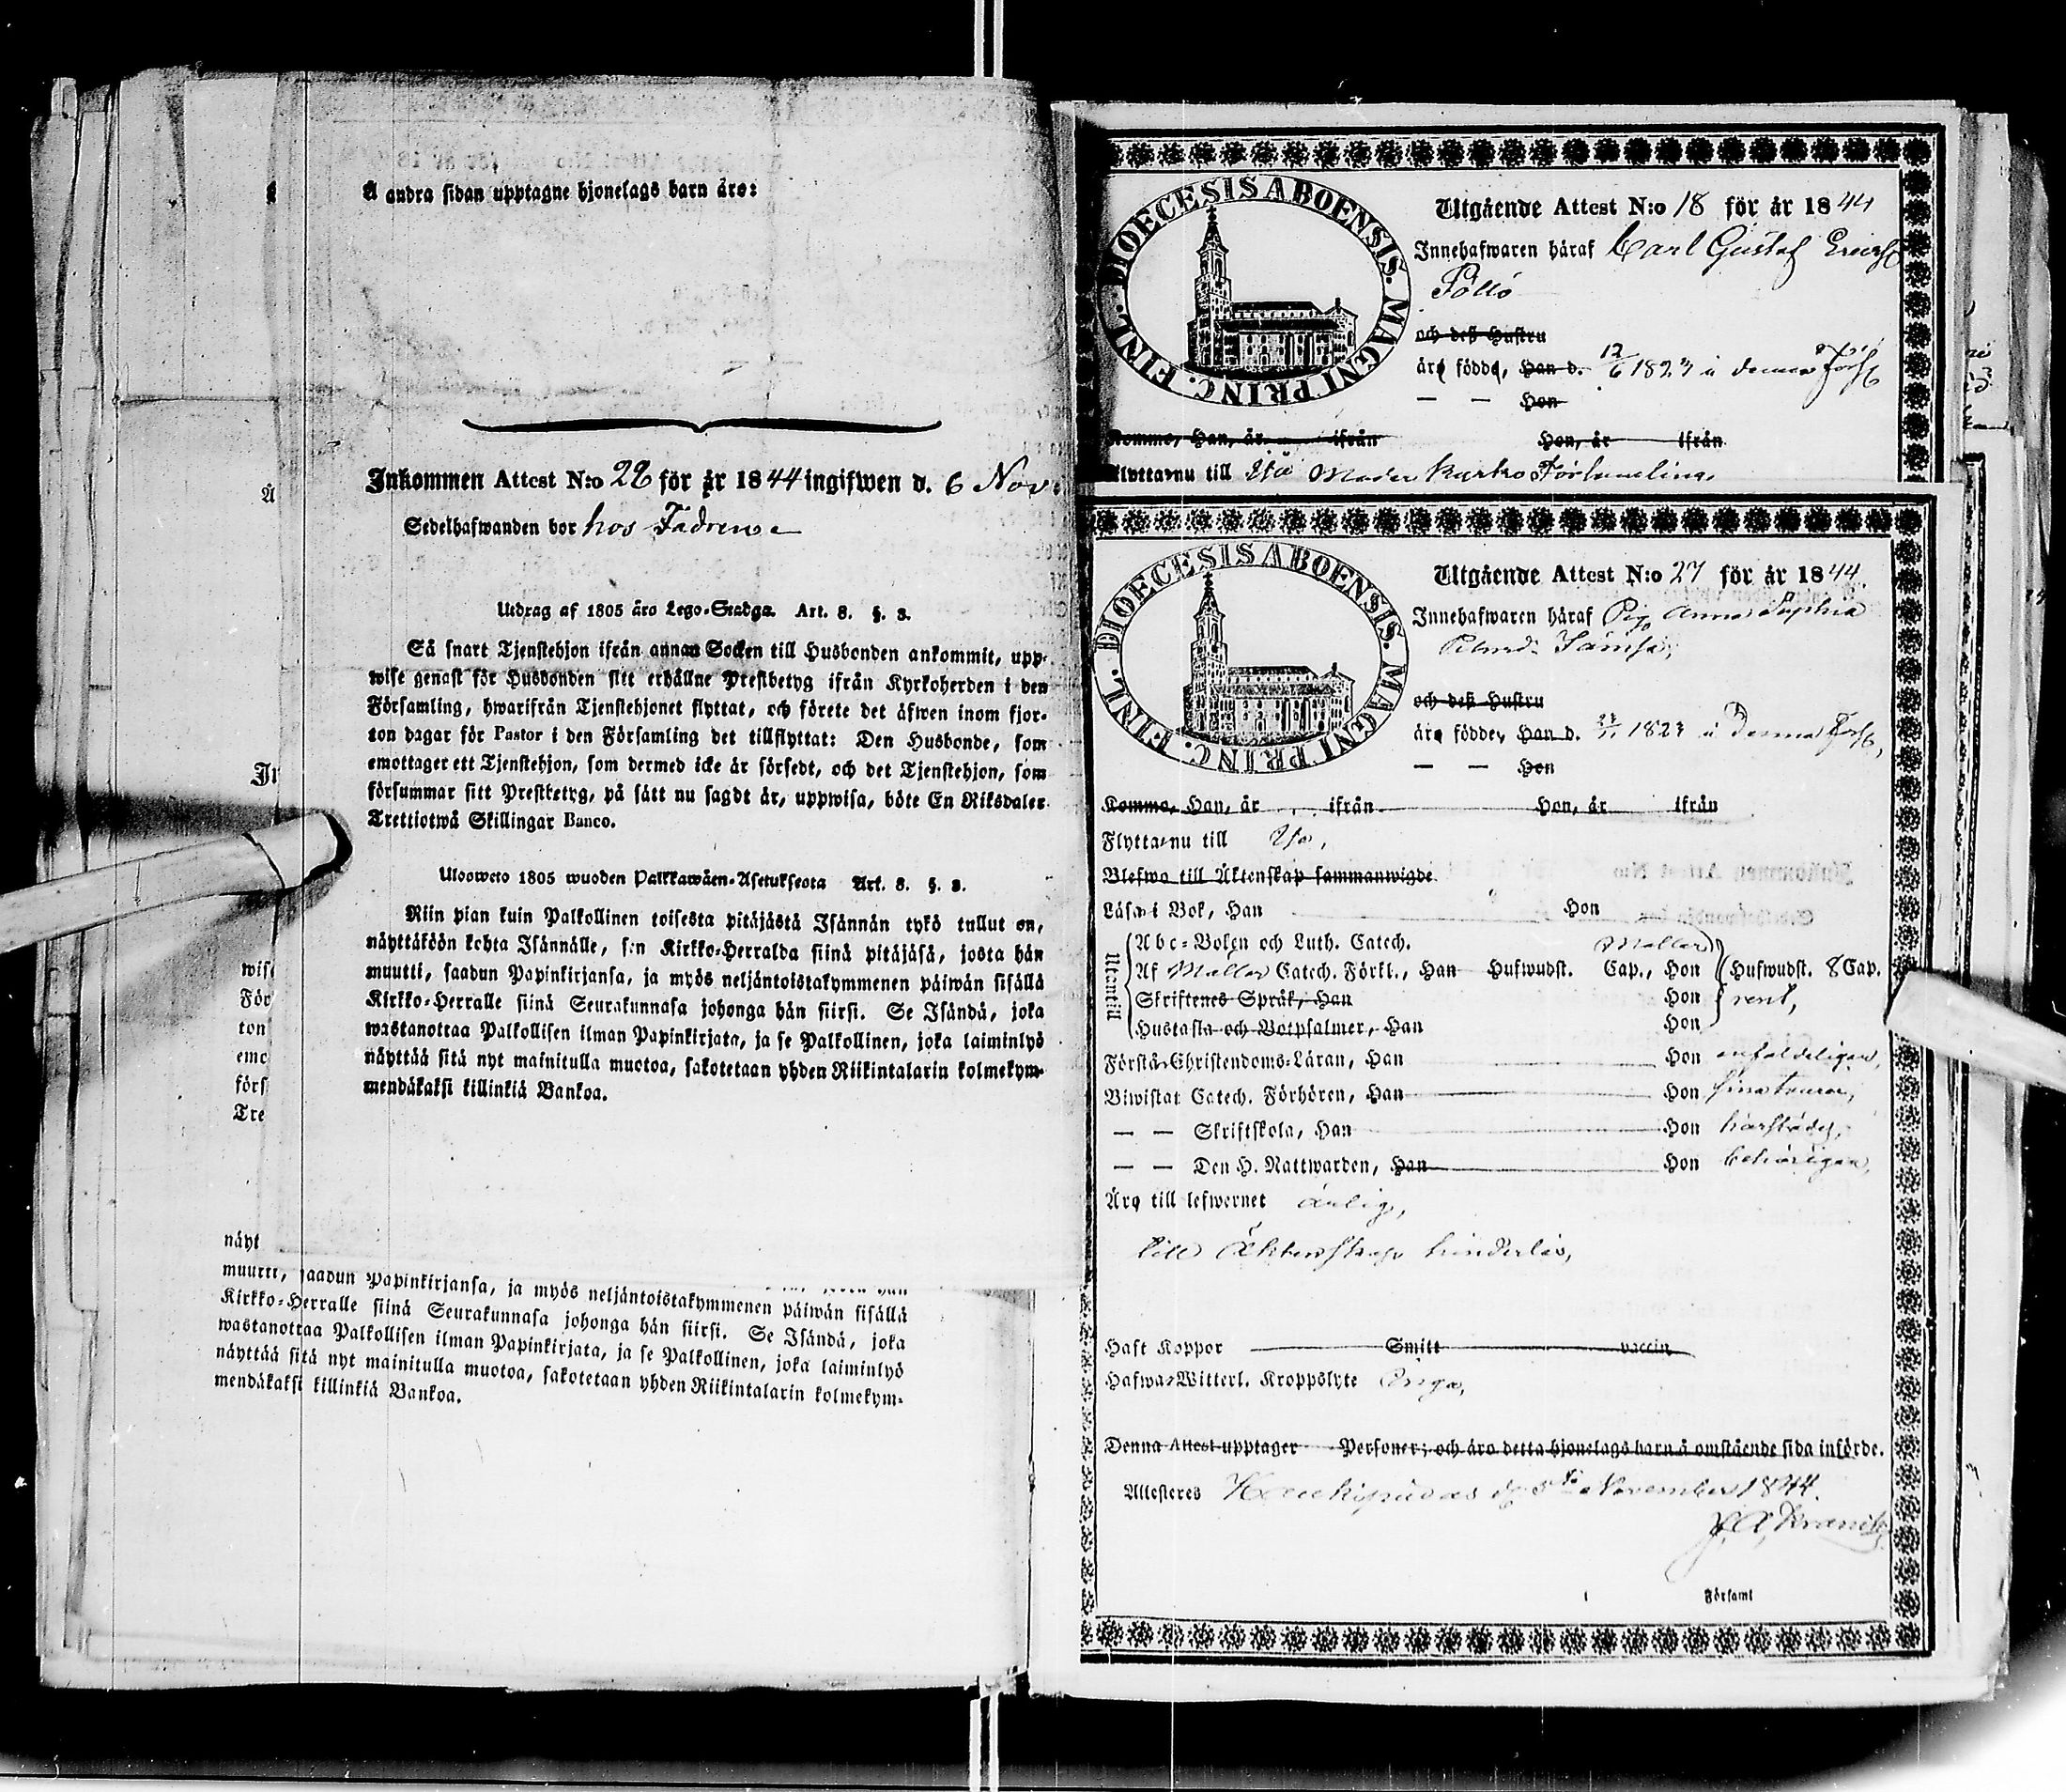 Å andra sidan upptagne hjonelags barn äro:
Inkommen Attest N:o 22 för år 1844 ingifwen d. 6 Nov.
Sedelhafwanden bor hos
Utdrag af 1805 års Lego-Stadga. Art. 8. §. 3.
Så snart Tjenstehjon ifrån annan Socken till Husbonden ankommit, upp-
wise genast för Husbonden sitt erhållne Prestbetyg ifrån Kyrkoherden i den
Församling, hwarifrån Tjenstehjonet flyttat, och förete det äfwen inom fjor-
ton dagar för Pastor i den Församling det tillflyttat: Den Husbonde, som
emottager ett Tjenstehjon, som dermed icke är försedt, och det Tjenstehjon, som
försummar sitt Prestbetyg, på sätt nu sagdt är, uppwisa, böte En Riksdaler
Trettiotwå Skillingar Banco.
Ulosweto 1805 wuoden Palkkawäen-Asetuksesta Art. 8. §. 3.
Niin pian kuin Palkollinen toisesta pitäjästä Isännän tykö tullut on,
näyttäköön kohta Isännälle, sen Kirkko-Herralda siinä pitäjäsä, josta hän
muutti, saadun Papinkirjansa, ja myös neljäntoistakymmenen päiwän sisällä
Kirkko-Herralle siinä Seurakunnasa johonga hän siirsi. Se Isändä, joka
wastanottaa Palkollisen ilman Papinkirjata, ja se Palkollinen, joka laiminlyö
näyttää sitä nyt mainitulla muotoa, sakotetaan yhden Riikintalarin kolmekym-
mendäkaksi killinkiä Bankoa.
wise
För
ton
emo
förs
Tre
näyt
muutti, saadun Papinkirjansa, ja myös neljäntoistakymmenen päiwän sisällä
Kirkko-Herralle siinä Seurakunnasa johonga hän siirsi. Se Isändä, joka
wastanottaa Palkollisen ilman Papinkirjata, ja se Palkollinen, joka laiminlyö
näyttää sitä nyt mainitulla muotoa, sakotetaan yhden Riikintalarin kolmekym-
mendäkaksi killinkiä Bankoa.
FINL. DIOECESIS ABOENSIS. MAGNI PRINC.
Utgående Attest N:o 18 för år 1844
Innehafwaren häraf Carl Gustaf Ericss
Pöllö
och deß Hustru
äro födde, Han d. 12/6 1823 i denna Förs
— — Hon
Komme, Han, år ifrån Hon, år ifrån
Flytta nu till
FINL. DIOECESIS ABOENSIS. MAGNI PRINC.
Utgående Attest N:o 27 för år 1844
Innehafwaren häraf Pig. Anna Sophia
och deß Hustru
äro födde, Han d. 1823 i Denna Förs,
— — Hon
Komme, Han, år ifrån Hon, år ifrån
Flytta nu till
Blefwo till Äktenskap sammanwigde
Läsa i Bok, Han Hon
Utantill
Abc-Boken och Luth. Catech.
Af Catech. Förkl., Han Hufwudst. Cap., Hon Hufwudst. 8 Cap.
Skriftenes Språk, Han Hon rent,
Hustafla och Botpsalmer, Han Hon
Förstå Christendoms-Läran, Han Hon enfaldeligen,
Biwistat Catech. Förhören, Han Hon
— — Skriftskola, Han Hon härstädes,
— — Den H. Nattwarden, Han Hon behörigen,
Äro till lefwernet ärlig,
till Äktenskap hinderlös,
Haft Koppor Smitt vaccin
Hafwa Witterl. Kroppslyte Inga,
Denna Attest upptager Personer; och äro detta hjonelags barn å omstående sida införde.
Attesteres Haukipudas d. 5te November 1844.
Församl